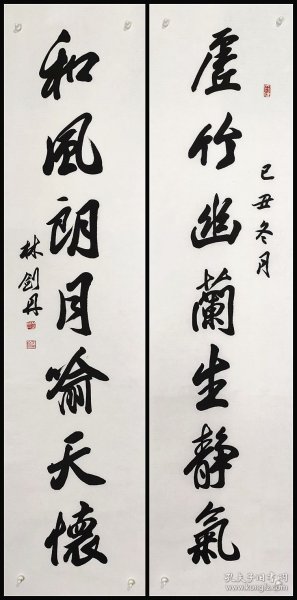 虚竹幽蘭生靜氣
己丑冬月
和風朗月喻天懷
林劍丹
孔夫子旧书网